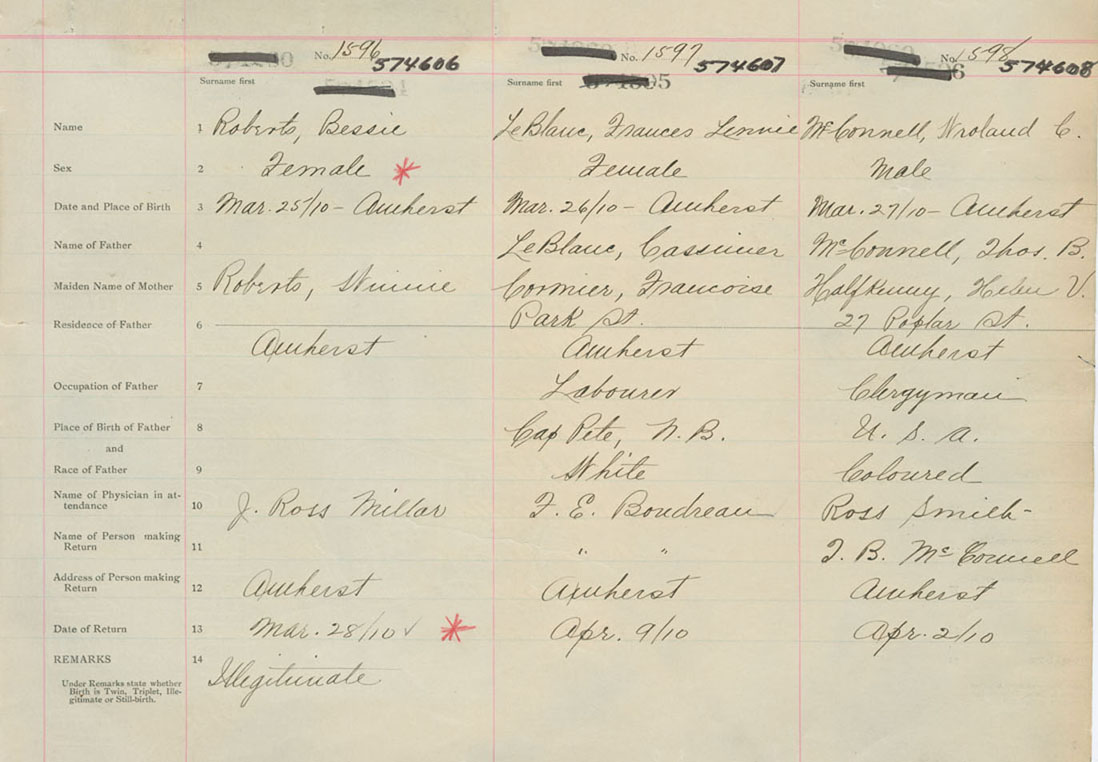 No. 1596 574606 No. 1597 574607 No. 1598 574608
Surname first Surname first Surname first
Name 1 Roberts, Bessie LeBlanc, Frances Lennie McConnell, Wroland C.
Sex 2 Female * Female Male
Date and Place of Birth 3 Mar. 25/10 - Amherst Mar. 26/10 - Amherst Mar. 27/10 - Amherst
Name of Father 4 LeBlanc, Cassimer McConnell, Thos. B.
Maiden Name of Mother 5 Roberts, Winnie Cormier, Francoise Halfkenny, Helen V.
Park St. 27 Poplar St.
Residence of Father 6 Amherst Amherst Amherst
Occupation of Father 7 Labourer Clergyman
Place of Birth of Father 8 Cap Pete, N.B. U. S. A.
and
Race of Father 9 White Coloured
Name of Physician in at-
tendance 10 J. Ross Millar F. E. Boudreau Ross Smith
Name of Person making
Return 11 " " T. B. McConnell
Address of Person making
Return 12 Amherst Amherst Amherst
Date of Return 13 Mar. 28/10 ✓ * Apr. 9/10 Apr. 2/10
REMARKS 14 Illegitimate
Under Remarks state whether
Birth is Twin, Triplet, Ille-
gitimate or Still-birth.